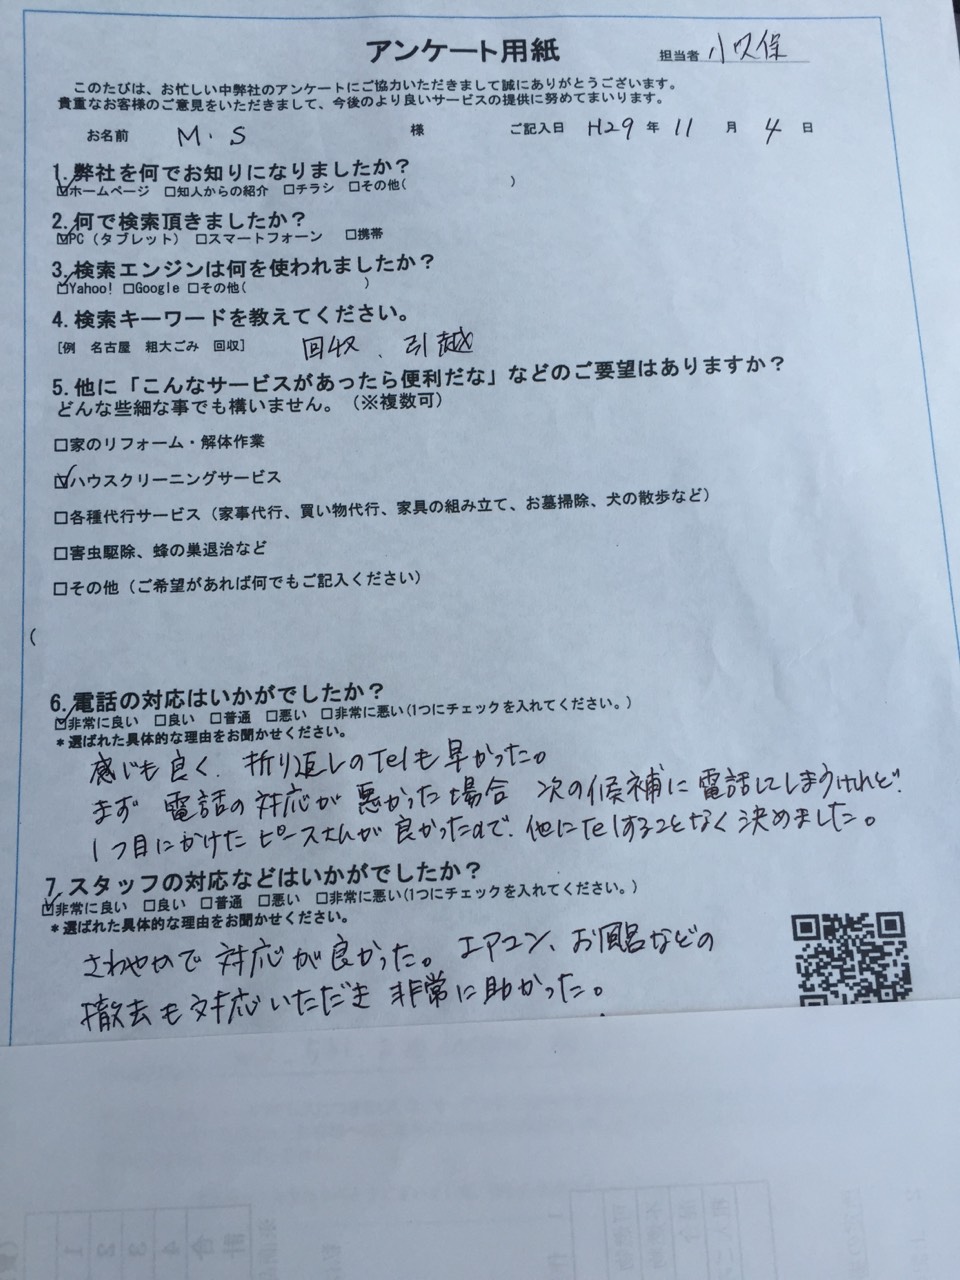 アンケート用紙
担当者 小久保
このたびは、お忙しい中弊社のアンケートにご協力いただきまして誠にありがとうございます。
貴重なお客様のご意見をいただきまして、今後のより良いサービスの提供に努めてまいります。
お名前 M.S 様 ご記入日 H29 年 11 月 4 日
1.弊社を何でお知りになりましたか？
☑ホームページ □知人からの紹介 □チラシ □その他( )
2.何で検索頂きましたか？
☑PC（タブレット） □スマートフォーン □携帯
3.検索エンジンは何を使われましたか？
☑Yahoo! □Google □その他( )
4.検索キーワードを教えてください。
[例 名古屋 粗大ごみ 回収] 回収、引越
5.他に「こんなサービスがあったら便利だな」などのご要望はありますか？
どんな些細な事でも構いません。（※複数可）
□家のリフォーム・解体作業
☑ハウスクリーニングサービス
□各種代行サービス（家事代行、買い物代行、家具の組み立て、お墓掃除、犬の散歩など）
□害虫駆除、蜂の巣退治など
□その他（ご希望があれば何でもご記入ください）
(
6.電話の対応はいかがでしたか？
☑非常に良い □良い □普通 □悪い □非常に悪い(1つにチェックを入れてください。)
＊選ばれた具体的な理由をお聞かせください。
感じも良く、折り返しのTelも早かった。
まず 電話の対応が悪かった場合 次の候補に電話してしまうけれど、
1つ目にかけたピースさんが良かったので、他にTelすることなく決めました。
7.スタッフの対応などはいかがでしたか？
☑非常に良い □良い □普通 □悪い □非常に悪い(1つにチェックを入れてください。)
＊選ばれた具体的な理由をお聞かせください。
さわやかで対応が良かった。エアコン、お風呂などの
撤去も対応いただき非常に助かった。